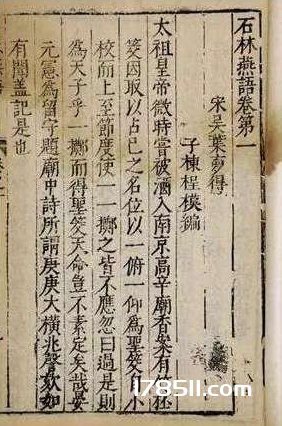 石林燕語卷第一
宋吳葉夢得
子棟桯模編
太祖皇帝微時嘗被酒入南京高辛廟香案有竹桮
筊因取以占己之名位以一俯一仰爲聖筊自小
校而上至節度使一一擲之皆不應忽曰過是則
爲天子乎一擲而得聖筊天命豈不素定矣哉晏
元憲爲留守題廟中詩所謂庚庚大橫兆謦欬如
有聞蓋記是也
178511.com